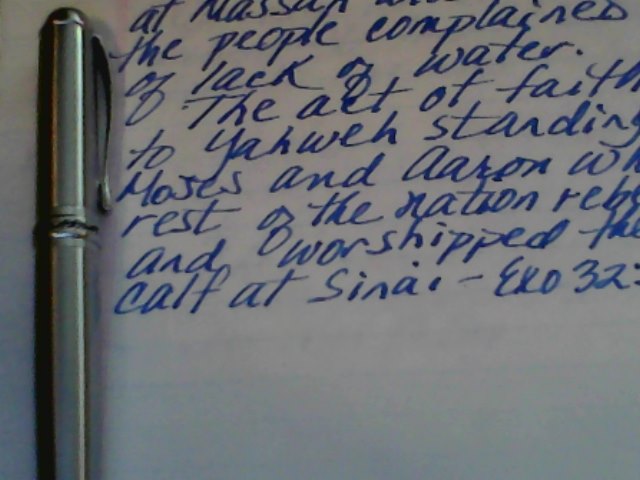 at Massah
the people complained
of lack of water.
The act of faith
to Yahweh standing
Moses and Aaron wh
rest of the nation rebe
and worshipped the
calf at Sinai - Exo 32: